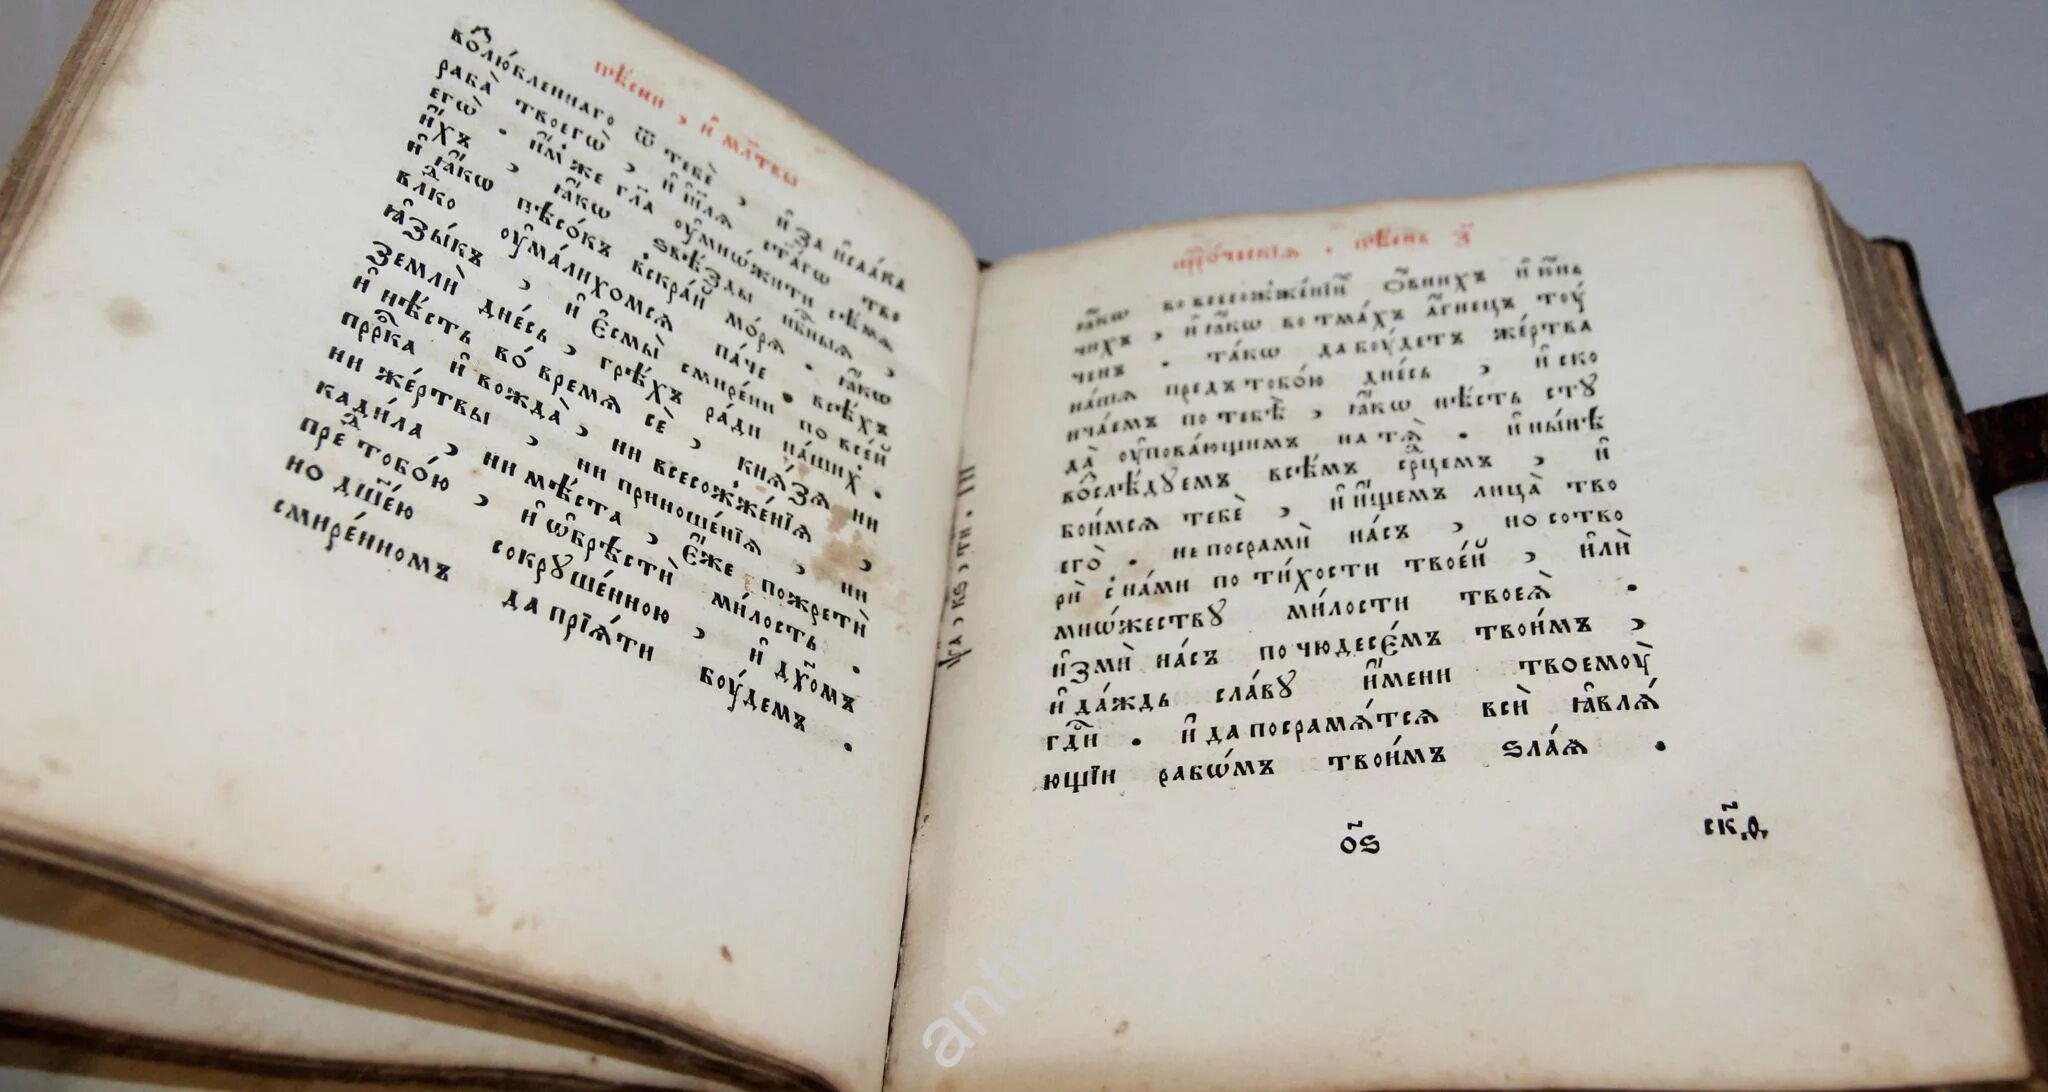 пѣ́сни , и҆ мл҃твы
во́злю́бленнаго ѿ тебѐ , и҆ за і҆саа́ка
раба̀ твоегѡ̀ , и҆ і҆и҃лѧ ст҃а́гѡ тво
егѡ̀ . и҆́мже гл҃а оу҆мно́жити сѣ́мѧ
и҆́хъ , ꙗ҆́кѡ ѕвѣ́зды нб҃ныѧ ,
и҆ ꙗ҆́кѡ пѣсо́къ вскра́й мо́рѧ . ꙗ҆́кѡ
влⷣко оу҆ма́лихомсѧ па́че всѣ́хъ
ꙗ҆зы́къ , и҆ є҆смы̀ смире́ни по все́й
землѝ дне́сь , грѣ́хъ ра́ди на́ших .
и҆ нѣ́сть во́ время сѐ , кнѧ́зѧ ни
прⷪ҇рка и҆ вождѧ̀ , ни всесожже́нїѧ ,
ни же́ртвы , ни приноше́нїѧ , ни
кади́ла , ни мѣ́ста , є҆́же пожре́тѝ
преⷣ тобо́ю , и҆ ѡ҆брѣ́стѝ ми́лость .
но дш҃е́ю сокꙋше́нною , и҆ дх҃омъ
смире́нномъ да прїѧ́ти бꙋ́демъ .
ѱа , кѕ , ти . гн
пррⷪ҇ческїѧ . пѣ́снь з҃
ꙗ҆́кѡ во всесожже́нїи ѻ҆́внихъ и҆ ю҆́нь
чихъ , и҆ ꙗ҆́кѡ во тма́хъ а҆́гнецъ тоу́
ченъ . та́кѡ да боу́детъ же́ртва
на́шѧ предъ тобо́ю дне́сь , и҆ ско
нча́емъ по тебѣ̀ , ꙗ҆́кѡ нѣ́сть стꙋ
да̀ оу҆пова́ющимъ на тѧ̀ . и҆ ны́нѣ
во́слѣ́дꙋемъ всѣ́мъ срⷣцемъ , и҆
бои́мсѧ тебѐ , и҆ и҆́щемъ лица̀ тво
егѡ̀ . не посрамѝ на́съ , но сотво
рѝ с на́ми по ти́хости твое́й , и҆лѝ
мно́жествꙋ ми́лости твоеѧ̀ .
и҆змѝ на́съ по чюдесє́мъ твои́мъ ,
и҆ да́ждь сла́вꙋ и҆́мени твоемоу̀
гдⷭ҇и . и҆ да посрамѧ́тсѧ всѝ ꙗ҆влѧ́
ющїи рабѡ́мъ твои́мъ ѕла́ѧ .
о҃ѕ
ск҃д
antiq74